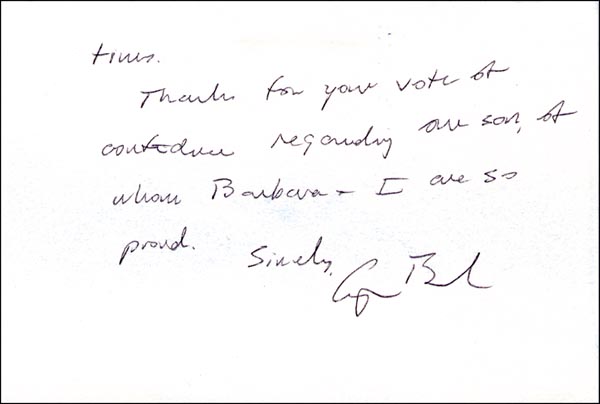 times.
Thanks for your vote of
confidence regarding our son, of
whom Barbara + I are so
proud.
Sincerely,
George Bush